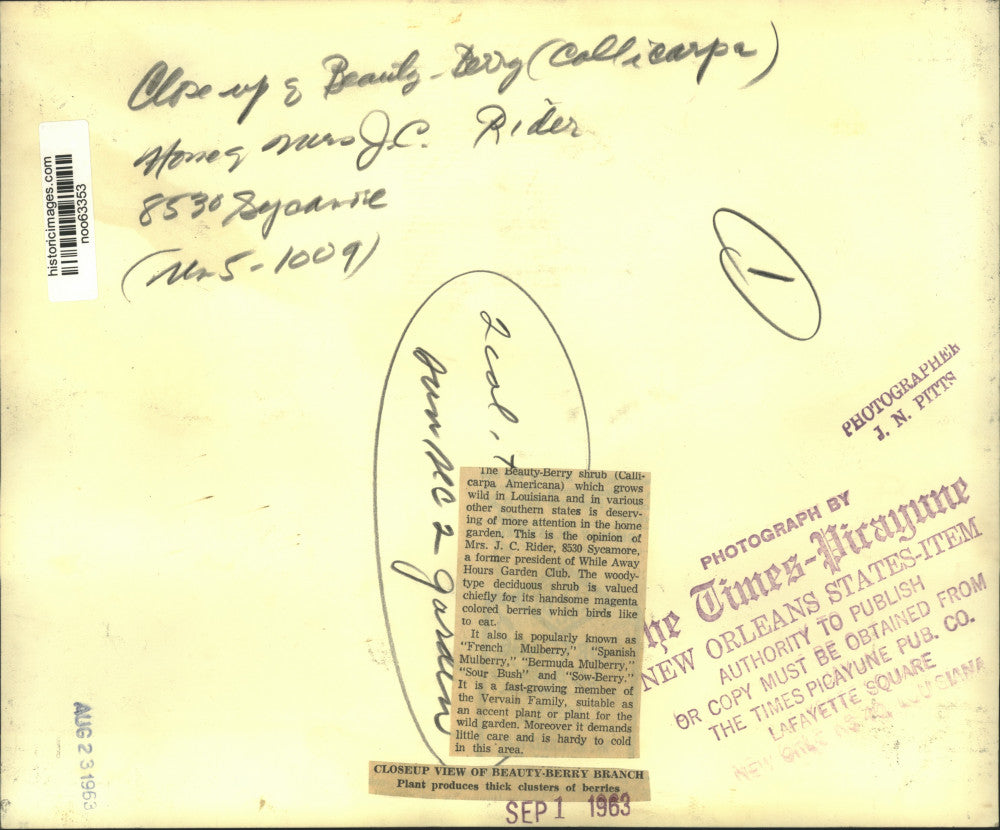 Close up of Beauty-Berry (Callicarpa)
Home of Mrs J.C. Rider
8530 Sycamore
(Un 5-1009)
historicimages.com
noo63353
1
2 col. +
Sun Sec 2 garden
PHOTOGRAPHER
J. N. PITTS
The Beauty-Berry shrub (Calli-
carpa Americana) which grows
wild in Louisiana and in various
other southern states is deserv-
ing of more attention in the home
garden. This is the opinion of
Mrs. J. C. Rider, 8530 Sycamore,
a former president of While Away
Hours Garden Club. The woody-
type deciduous shrub is valued
chiefly for its handsome magenta
colored berries which birds like
to eat.
It also is popularly known as
"French Mulberry," "Spanish
Mulberry," "Bermuda Mulberry,"
"Sour Bush" and "Sow-Berry."
It is a fast-growing member of
the Vervain Family, suitable as
an accent plant or plant for the
wild garden. Moreover it demands
little care and is hardy to cold
in this area.
CLOSEUP VIEW OF BEAUTY-BERRY BRANCH
Plant produces thick clusters of berries
SEP 1 1963
AUG 23 1963
PHOTOGRAPH BY
The Times-Picayune
NEW ORLEANS STATES-ITEM
AUTHORITY TO PUBLISH
OR COPY MUST BE OBTAINED FROM
THE TIMES PICAYUNE PUB. CO.
LAFAYETTE SQUARE
NEW ORLEANS LOUISIANA